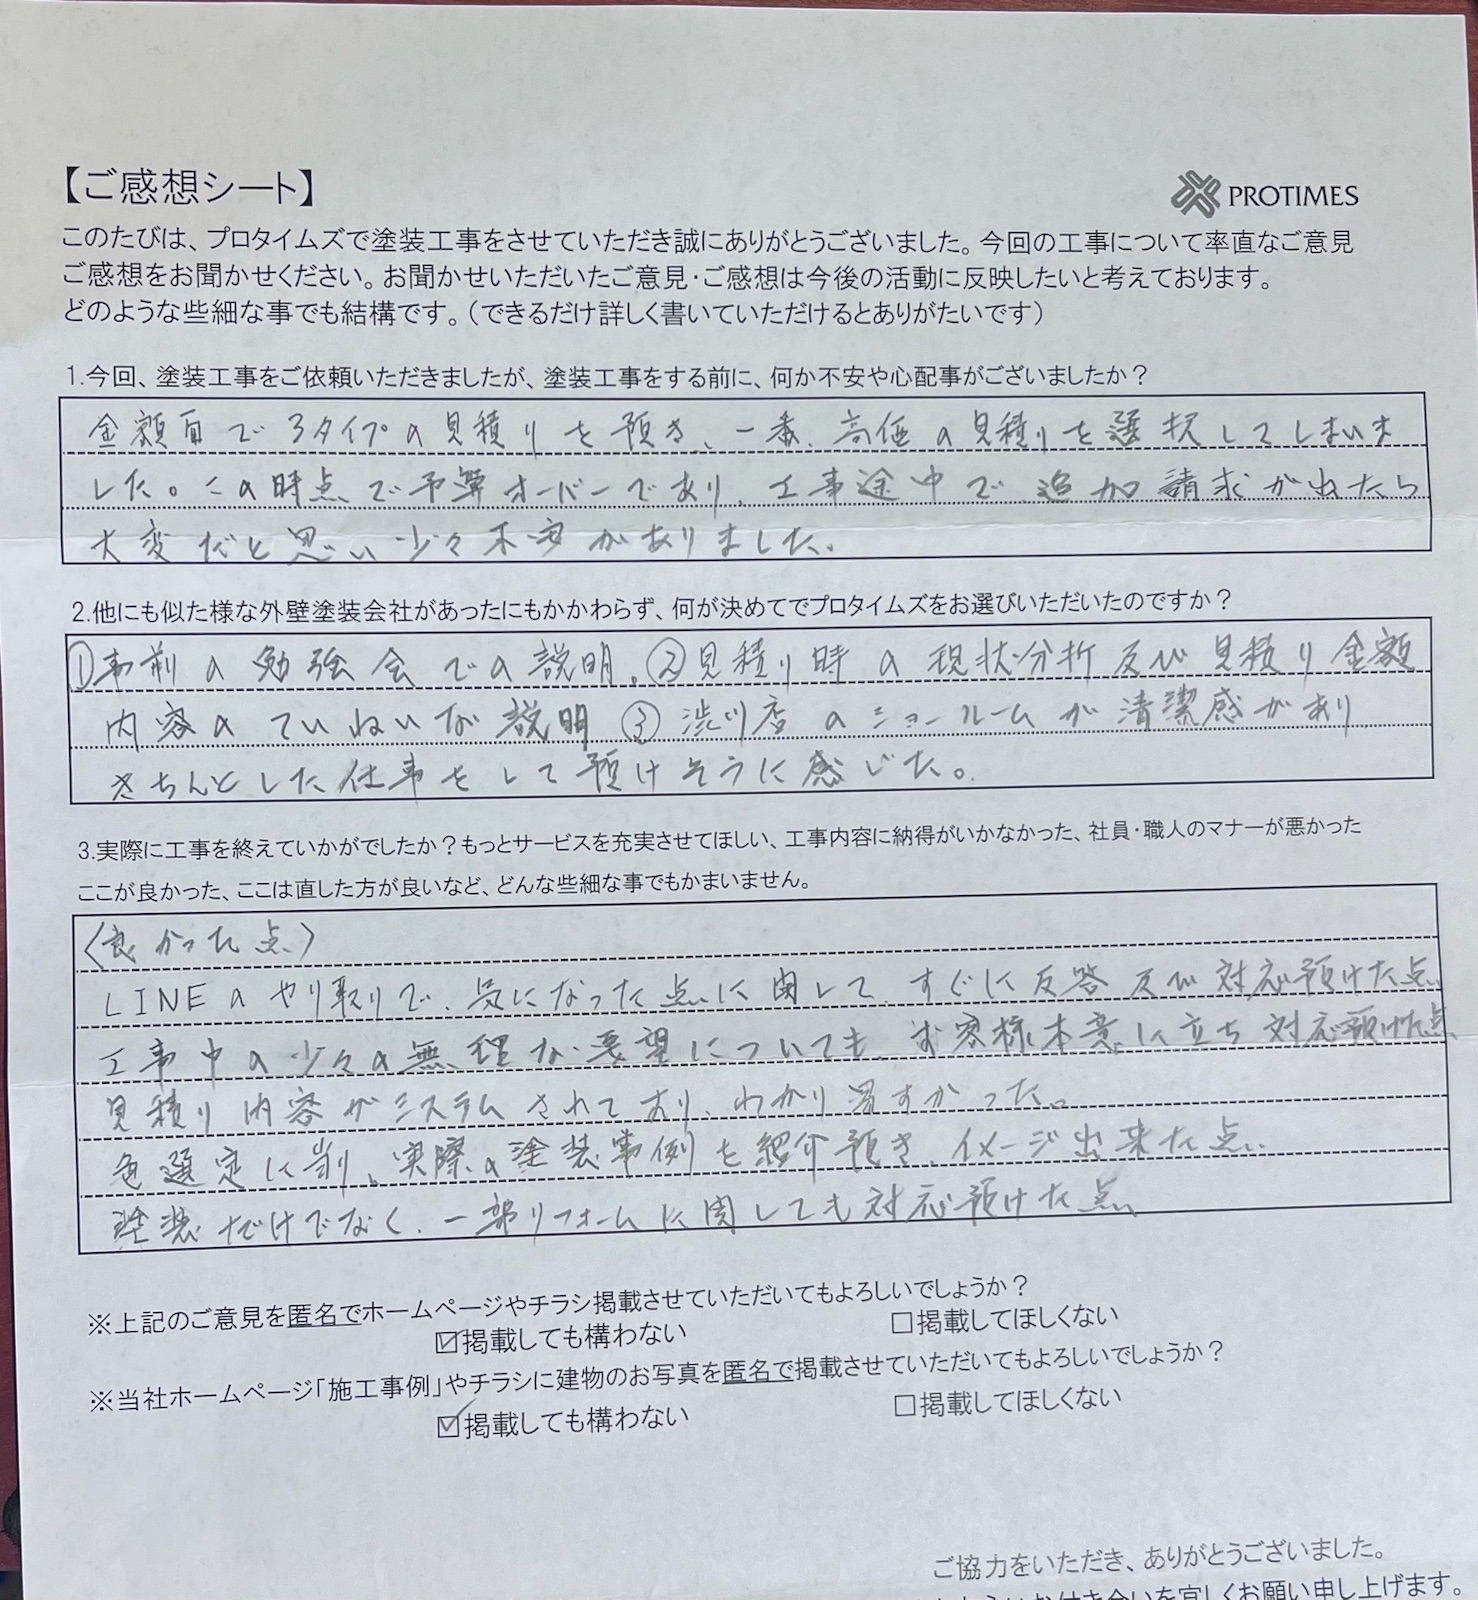 【ご感想シート】
PROTIMES
このたびは、プロタイムズで塗装工事をさせていただき誠にありがとうございました。今回の工事について率直なご意見
ご感想をお聞かせください。お聞かせいただいたご意見・ご感想は今後の活動に反映したいと考えております。
どのような些細な事でも結構です。(できるだけ詳しく書いていただけるとありがたいです)
1.今回、塗装工事をご依頼いただきましたが、塗装工事をする前に、何か不安や心配事がございましたか？
金額面で3タイプの見積りを預き、一番、高価の見積りを選択してしまいま
した。この時点で予算オーバーであり、工事途中で追加請求が出たら
大変だと思い少々不安がありました。
2.他にも似た様な外壁塗装会社があったにもかかわらず、何が決めてでプロタイムズをお選びいただいたのですか？
①事前の勉強会での説明。②見積り時の現状分析及び見積り金額
内容のていねいな説明③渋川店のショールームが清潔感があり
きちんとした仕事をして預けそうに感じた。
3.実際に工事を終えていかがでしたか？もっとサービスを充実させてほしい、工事内容に納得がいかなかった、社員・職人のマナーが悪かった
ここが良かった、ここは直した方が良いなど、どんな些細な事でもかまいません。
〈良かった点〉
LINEのやり取りで、気になった点に関して、すぐに反答及び対応預けた点
工事中の少々の無理な要望についても、お客様本意に立ち対応預けた点
見積り内容がシステムされており、わかり易すかった。
色選定に当り、実際の塗装事例を紹介預き、イメージ出来た点
塗装だけでなく、一部リフォームに関しても対応預けた点
※上記のご意見を匿名でホームページやチラシ掲載させていただいてもよろしいでしょうか？
☑掲載しても構わない □掲載してほしくない
※当社ホームページ「施工事例」やチラシに建物のお写真を匿名で掲載させていただいてもよろしいでしょうか？
☑掲載しても構わない □掲載してほしくない
ご協力をいただき、ありがとうございました。
お付き合いを宜しくお願い申し上げます。